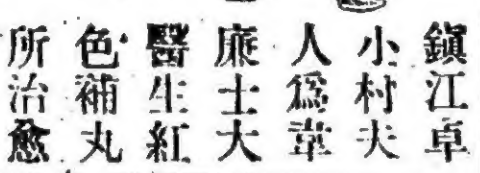 鎭江卓
小村夫
人爲韋
廉士大
醫生紅
色補丸
所治愈